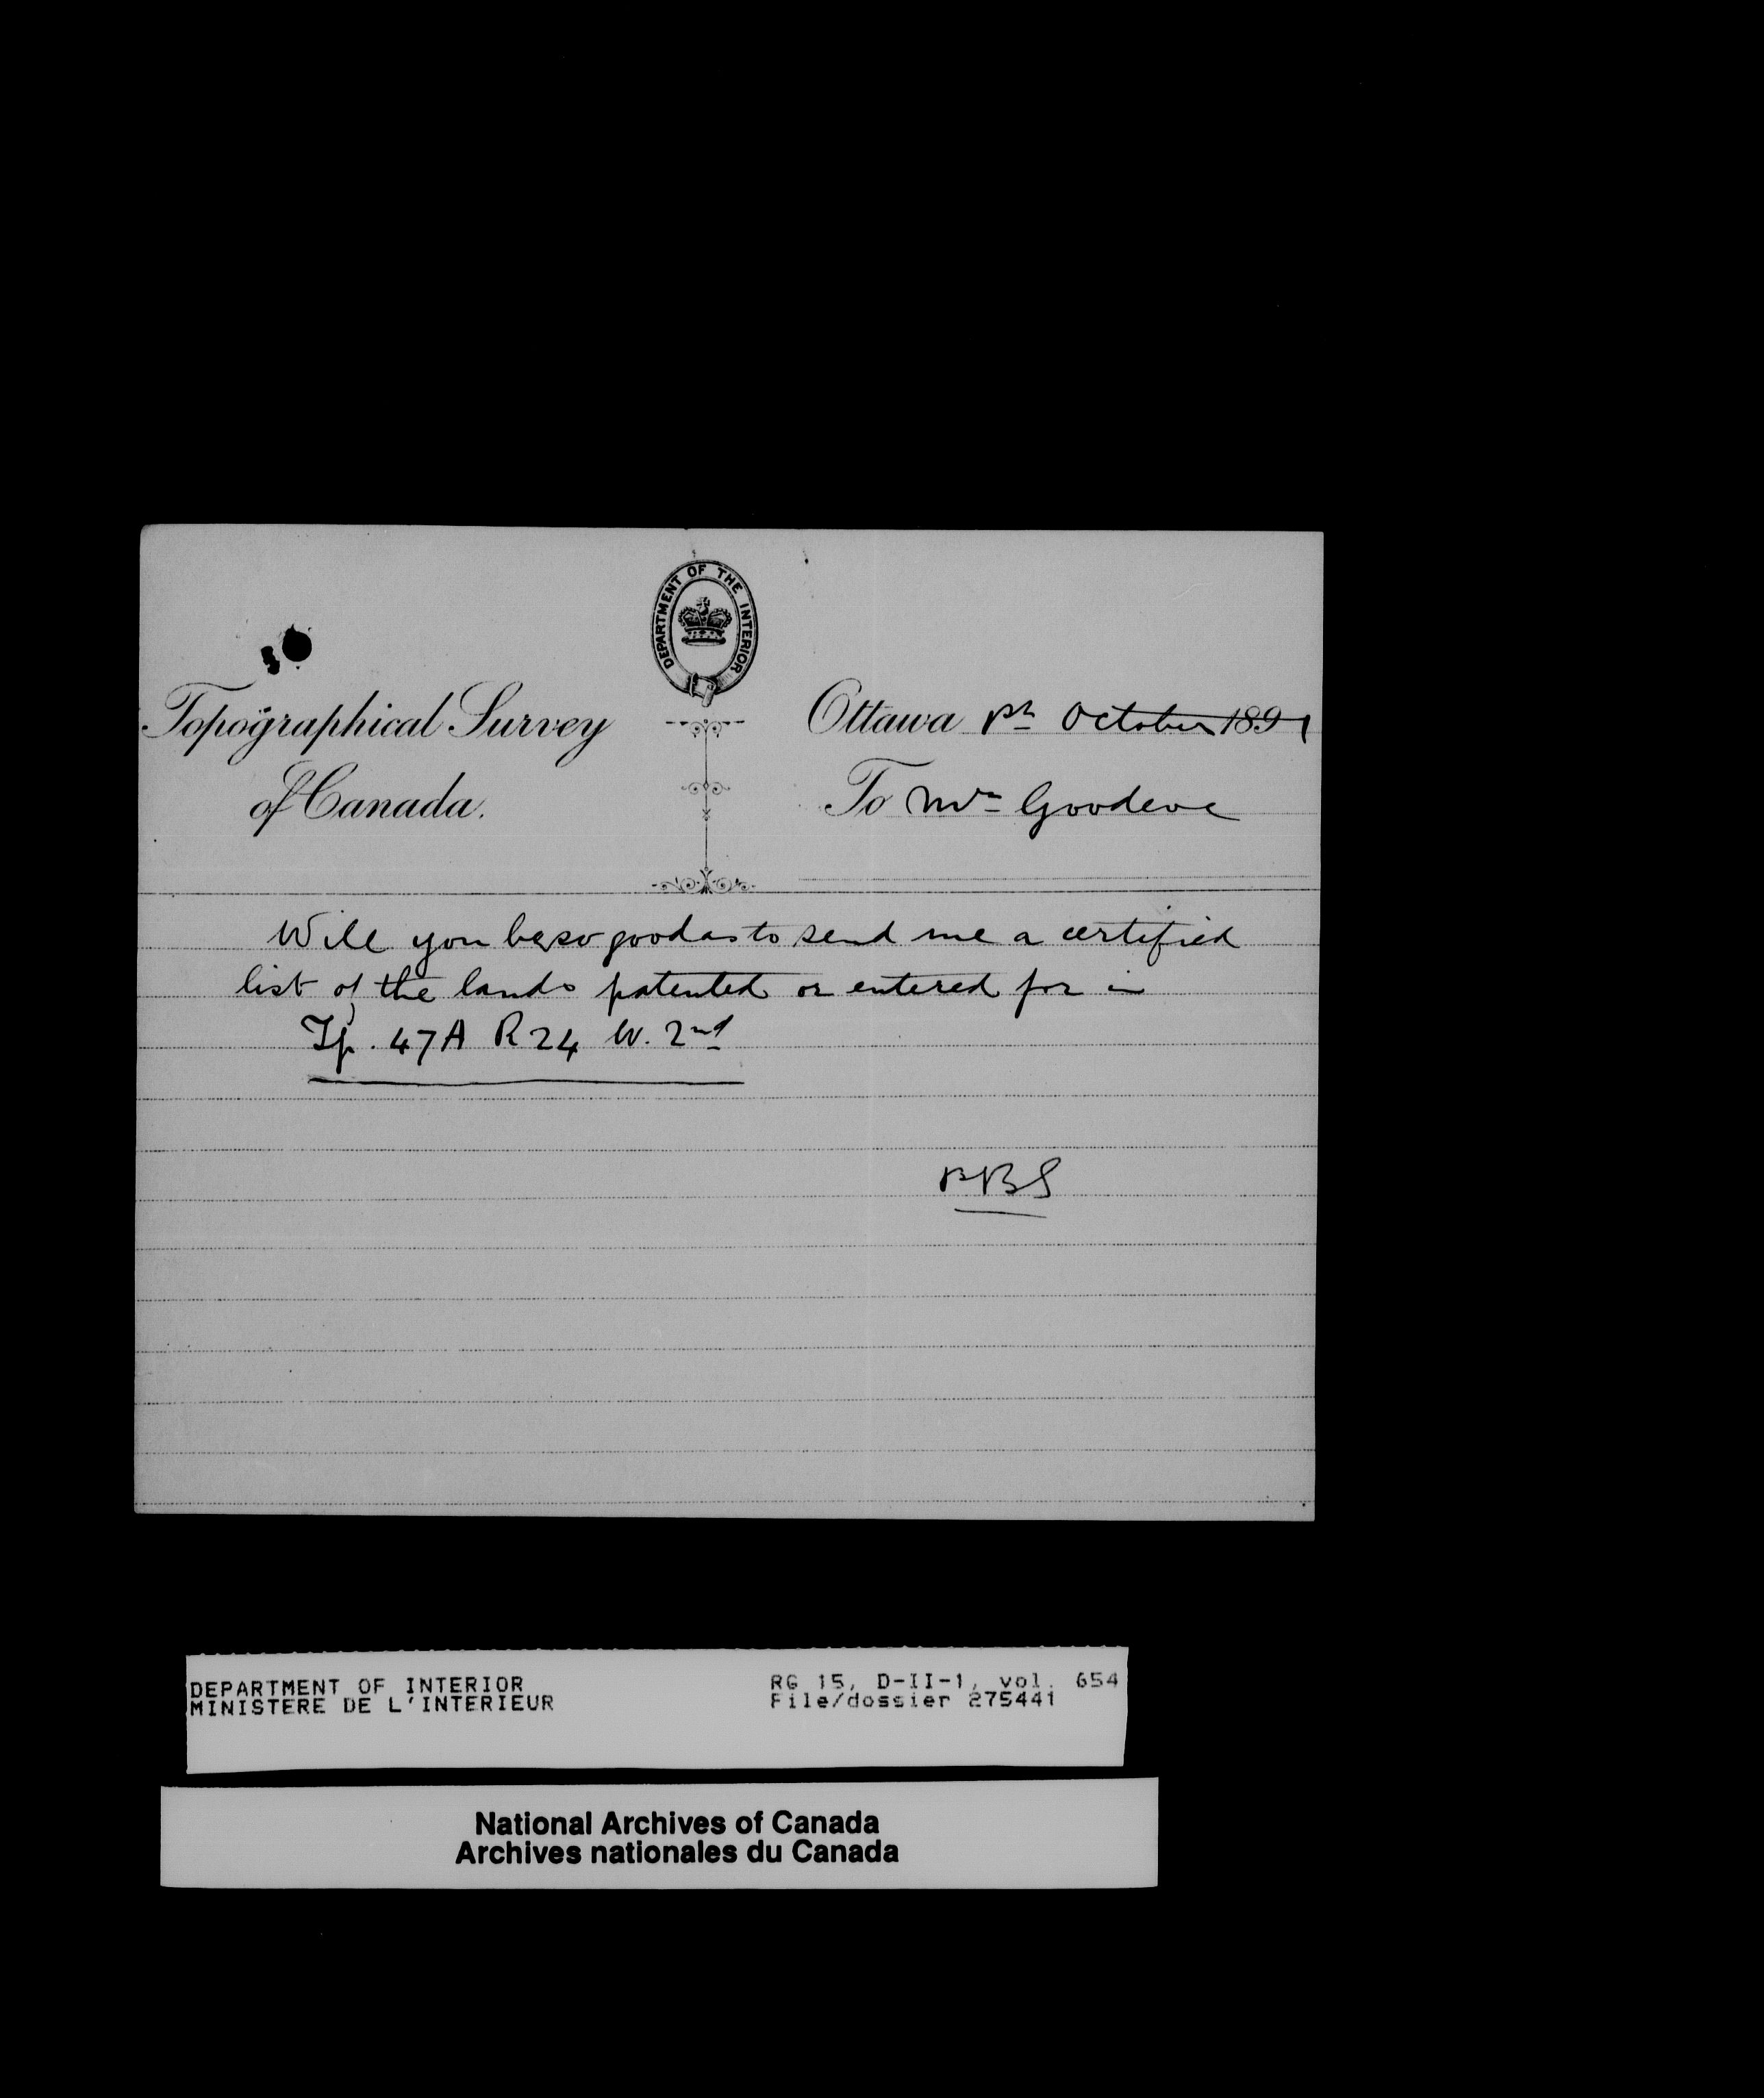 DEPARTMENT OF THE INTERIOR
Topographical Survey
of Canada.
Ottawa October 1891
To Mr Goodeve
Will you be so good as to send me a certified
list of the lands patented or entered for in
Tp. 47A R 24 W. 2nd
BBS
DEPARTMENT OF INTERIOR
MINISTERE DE L'INTERIEUR
RG 15, D-II-1, vol. 654
File/dossier 275441
National Archives of Canada
Archives nationales du Canada